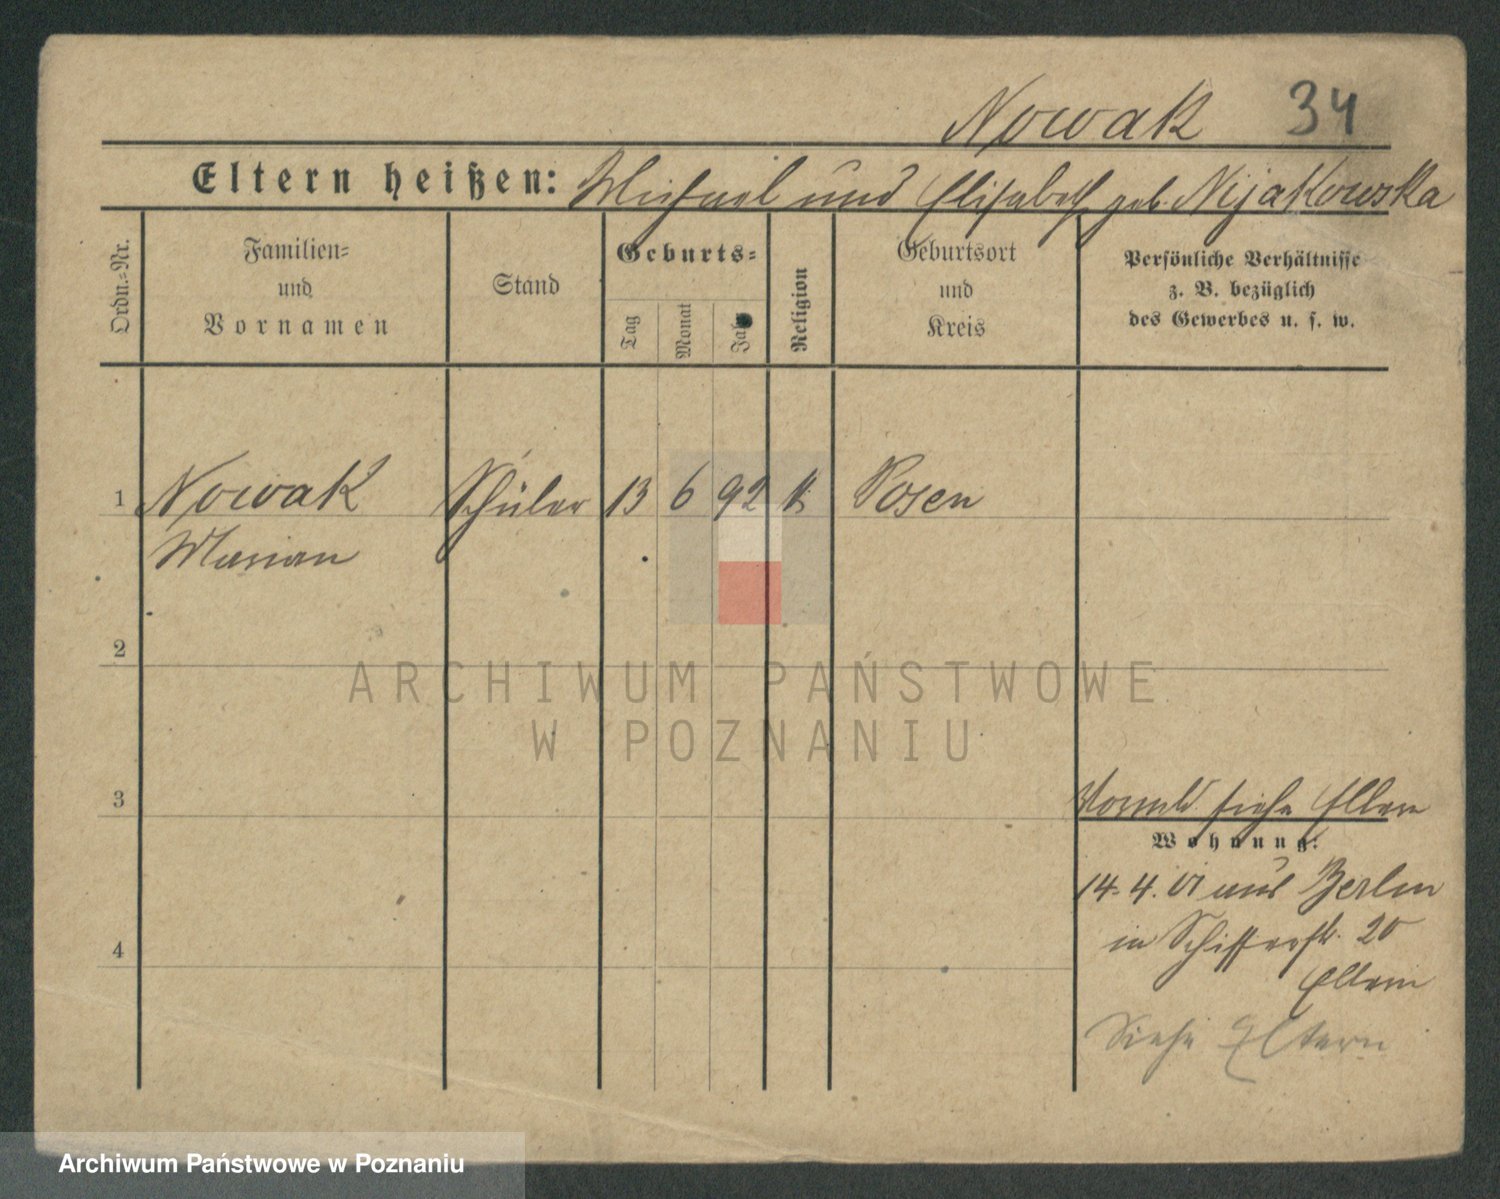 Nowak 34
Eltern heißen: Michael und Elisabeth geb. Nijakowska
Ordn.-Nr.
Familien-
und
Vornamen
Stand
Geburts-
Tag
Monat
Jahr
Religion
Geburtsort
und
Kreis
Persönliche Verhältnisse
z. B. bezüglich
des Gewerbes u. s. w.
1 Nowak Schüler 13 6 92 k. Posen
Marian
2
ARCHIWUM PAŃSTWOWE
W POZNANIU
3
siehe Eltern
Wohnung:
14.4.01 aus Berlin
in Schifferstr. 20
4
Eltern
Siehe Eltern
Archiwum Państwowe w Poznaniu